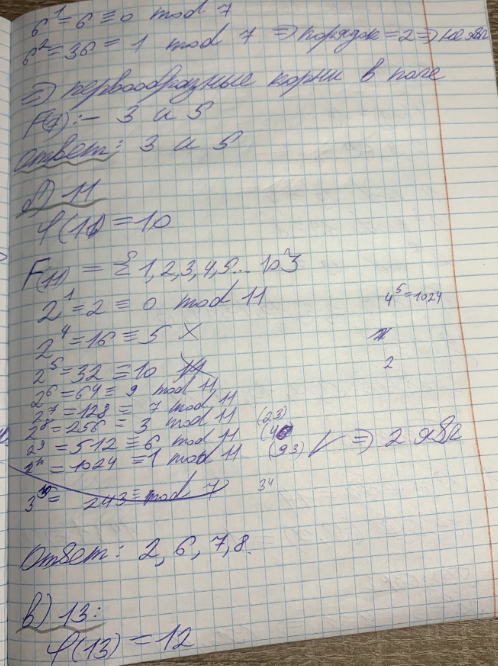 6^1 = 6 ≡ 0 mod 7
6^2 = 36 = 1 mod 7 ⇒ порядок = 2 ⇒ не явл
⇒ первообразные корни в поле
F(7): – 3 и 5
ответ: 3 и 5
б) 11
φ(11) = 10
F(11) = {1,2,3,4,5... 10}
2^1 = 2 ≡ 0 mod 11
4^5 = 1024
2^4 = 16 ≡ 5 ×
2^5 = 32 ≡ 10
2
2^6 = 64 ≡ 9 mod 11
2^7 = 128 = 7 mod 11
2^8 = 256 = 3 mod 11
2^9 = 512 ≡ 6 mod 11
= 1024 ≡ 1 mod 11 V ⇒ 2 явл
243 ≡ mod 7
3^4
Ответ: 2, 6, 7, 8.
в) 13:
φ(13) = 12